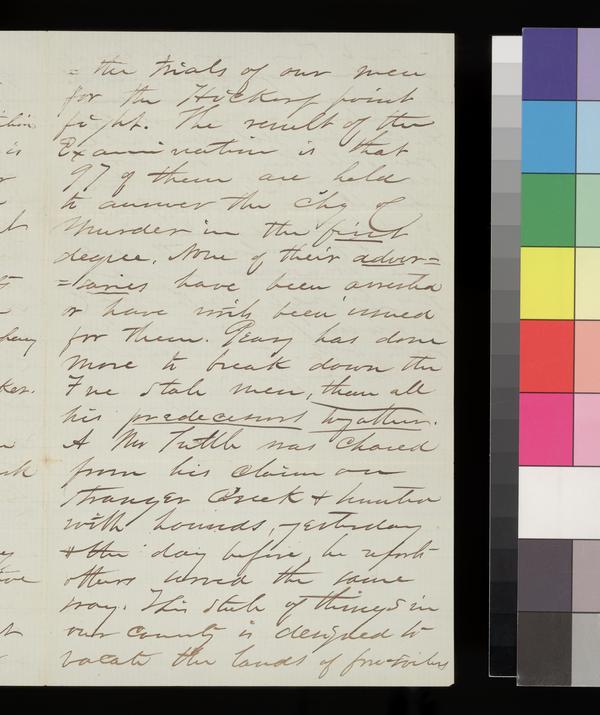 = the trials of our men
for the Hickory point
fight. The result of the
Examination is that
97 of them are held
to answer the chg of
Murder in the first
degree. None of their adver=
=saries have been arrested
or have writs been issued
for them. Geary has done
more to break down the
Free State men, than all
his predecessors together.
A Mr Tuttle was chased
from his claim on
Stranger Creek & hunted
with hounds, yesterday
& the day before, he reports
others served the same
way. This state of things in
our county is designed to
vacate the lands of free-soilers